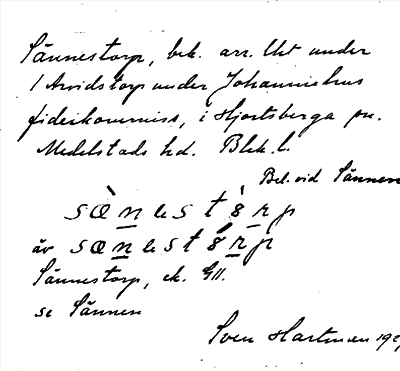 Sännestorp, bek. arr. lht under
1 Arvidstorp under Johannishus
fideikommiss, i Hjortsberga sn.
Medelstads hd. Blek. l.
Bel. vid Sännen
sæ̀nestò̱rp
äv sænestó̱rp
Sännestorp, ek. GII.
se Sännen
Sven Hartman